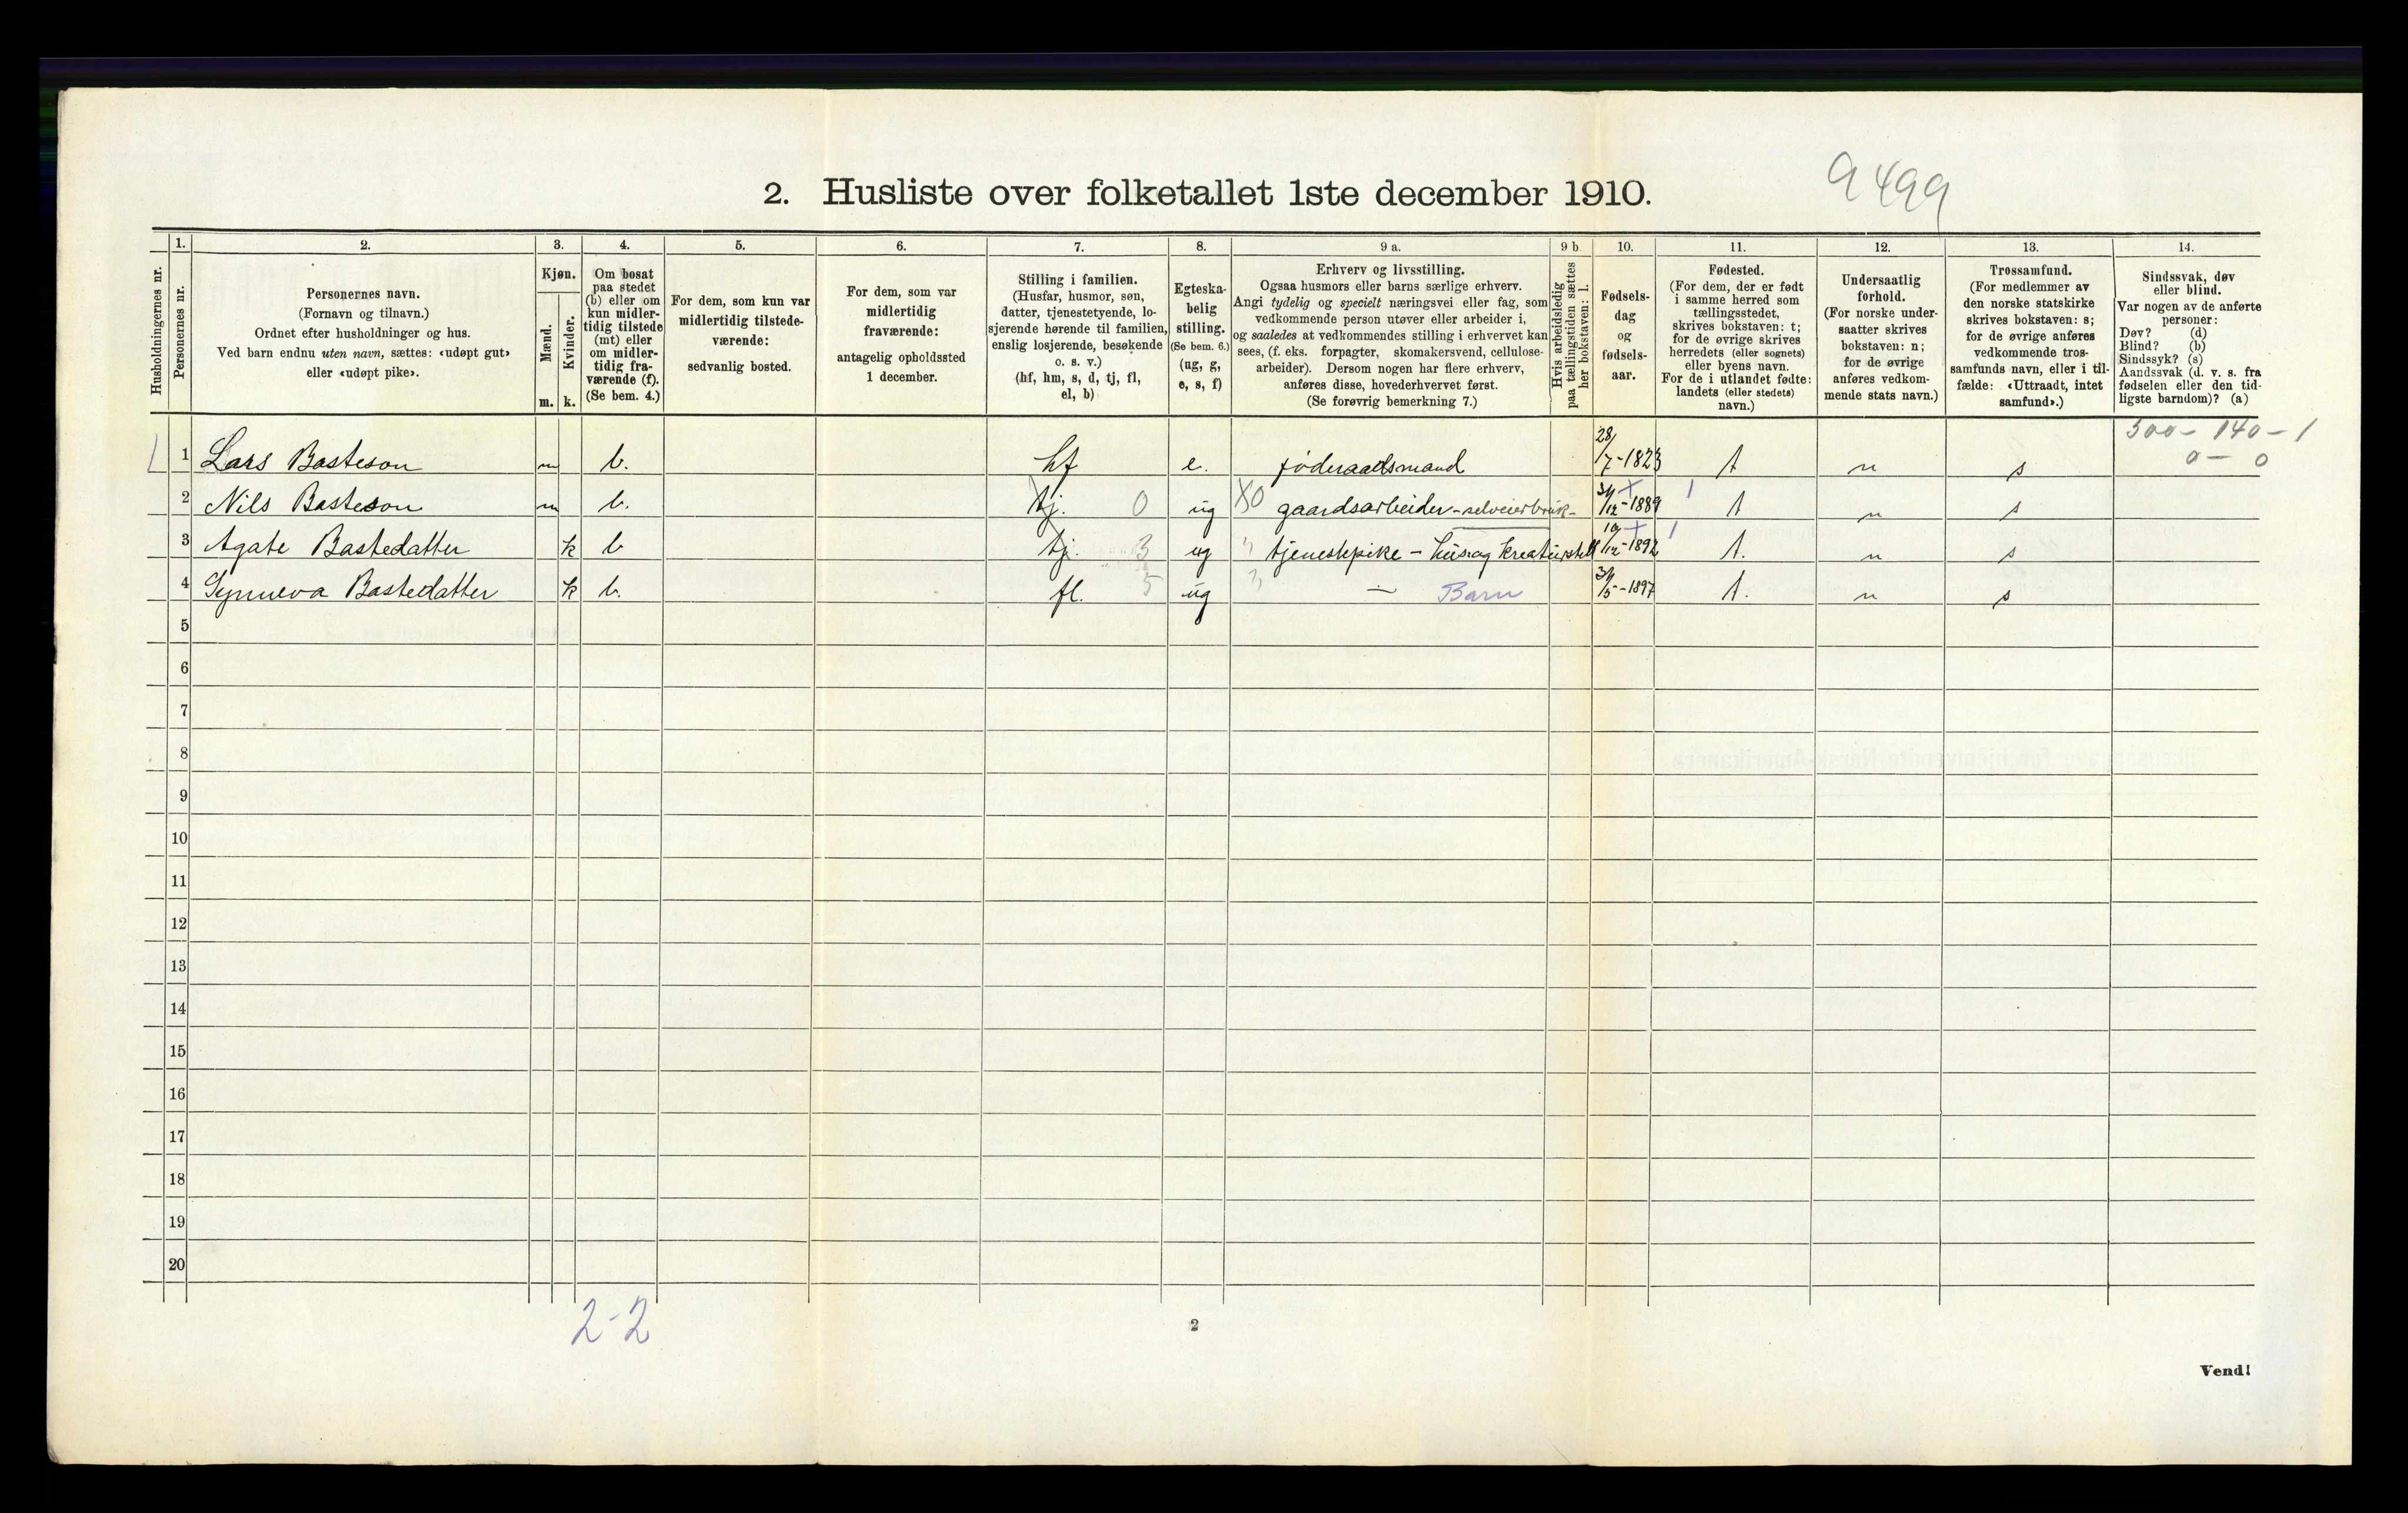 9499
2. Husliste over folketallet 1ste december 1910.
Husholdningernes nr.
1.
Personernes nr.
2.
Personernes navn.
(Fornavn og tilnavn.)
Ordnet efter husholdninger og hus.
Ved barn endnu uten navn, sættes: «udøpt gut»
eller «udøpt pike».
3.
Kjøn.
Mænd.
Kvinder.
m. k.
4.
Om bosat
paa stedet
(b) eller om
kun midler-
tidig tilstede
(mt) eller
om midler-
tidig fra-
værende (f).
(Se bem. 4.)
5.
For dem, som kun var
midlertidig tilstede-
værende:
sedvanlig bosted.
6.
For dem, som var
midlertidig
fraværende:
antagelig opholdssted
1 december.
7.
Stilling i familien.
(Husfar, husmor, søn,
datter, tjenestetyende, lo-
sjerende hørende til familien,
enslig losjerende, besøkende
o. s. v.)
(hf, hm, s, d, tj, fl,
el, b)
8.
Egteska-
belig
stilling.
(Se bem. 6.)
(ug, g,
e, s, f)
9 a.
Erhverv og livsstilling.
Ogsaa husmors eller barns særlige erhverv.
Angi tydelig og specielt næringsvei eller fag, som
vedkommende person utøver eller arbeider i,
og saaledes at vedkommendes stilling i erhvervet kan
sees, (f. eks. forpagter, skomakersvend, cellulose-
arbeider). Dersom nogen har flere erhverv,
anføres disse, hovederhvervet først.
(Se forøvrig bemerkning 7.)
9 b.
Hvis arbeidsledig
paa tællingstiden sættes
her bokstaven: l.
10.
Fødsels-
dag
og
fødsels-
aar.
11.
Fødested.
(For dem, der er født
i samme herred som
tællingsstedet,
skrives bokstaven: t;
for de øvrige skrives
herredets (eller sognets)
eller byens navn.
For de i utlandet fødte:
landets (eller stedets)
navn.)
12.
Undersaatlig
forhold.
(For norske under-
saatter skrives
bokstaven: n;
for de øvrige
anføres vedkom-
mende stats navn.)
13.
Trossamfund.
(For medlemmer av
den norske statskirke
skrives bokstaven: s;
for de øvrige anføres
vedkommende tros-
samfunds navn, eller i til-
fælde: «Uttraadt, intet
samfund».)
14.
Sindssvak, døv
eller blind.
Var nogen av de anførte
personer:
Døv? (d)
Blind? (b)
Sindssyk? (s)
Aandssvak (d. v. s. fra
fødselen eller den tid-
ligste barndom)? (a)
300 - 140 - 1
0 - 0
1 1 Lars Basteson m b. hf e. føderaadsmand 28/7-1823 t n s
2 Nils Basteson m b. tj. 0 ug X0 gaardsarbeider - selveierbruk - 31/12-1889 1 t n s
3 Agate Bastedatter k b tj. 3 ug " tjenestepike - hus og kreaturstell 19/12-1892 1 t. n s
4 Synneva Bastedatter k b. fl. 5 ug — Barn 31/5-1897 t. n s
5
6
7
8
9
10
11
12
13
14
15
16
17
18
19
20
2-2
2
Vend!